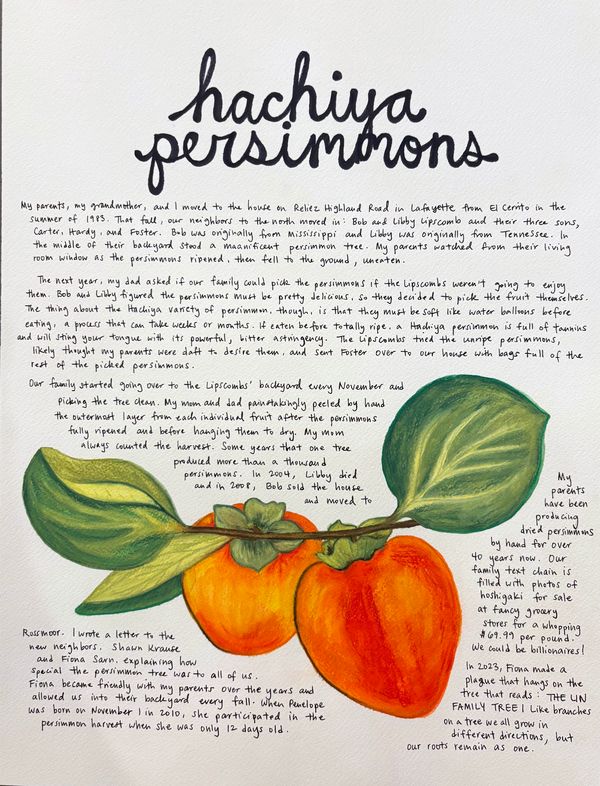 hachiya
persimmons
My parents, my grandmother, and I moved to the house on Reliez Highland Road in Lafayette from El Cerrito in the
summer of 1983. That fall, our neighbors to the north moved in: Bob and Libby Lipscomb and their three sons,
Carter, Hardy, and Foster. Bob was originally from Mississippi and Libby was originally from Tennessee. In
the middle of their backyard stood a magnificent persimmon tree. My parents watched from their living
room window as the persimmons ripened, then fell to the ground, uneaten.
The next year, my dad asked if our family could pick the persimmons if the Lipscombs weren't going to enjoy
them. Bob and Libby figured the persimmons must be pretty delicious, so they decided to pick the fruit themselves.
The thing about the Hachiya variety of persimmon, though, is that they must be soft like water balloons before
eating, a process that can take weeks or months. If eaten before totally ripe, a Hachiya persimmon is full of tannins
and will sting your tongue with its powerful, bitter astringency. The Lipscombs tried the unripe persimmons,
likely thought my parents were daft to desire them, and sent Foster over to our house with bags full of the
rest of the picked persimmons.
Our family started going over to the Lipscombs' backyard every November and
picking the tree clean. My mom and dad painstakingly peeled by hand
the outermost layer from each individual fruit after the persimmons
fully ripened and before hanging them to dry. My mom
always counted the harvest. Some years that one tree
produced more than a thousand
persimmons. In 2004, Libby died
and in 2008, Bob sold the house
and moved to
Rossmoor. I wrote a letter to the
new neighbors, Shawn Krause
and Fiona Sarn, explaining how
special the persimmon tree was to all of us.
Fiona became friendly with my parents over the years and
allowed us into their backyard every fall. When Penelope
was born on November 1 in 2010, she participated in the
persimmon harvest when she was only 12 days old.
My
parents
have been
producing
dried persimmons
by hand for over
40 years now. Our
family text chain is
filled with photos of
hoshigaki for sale
at fancy grocery
stores for a whopping
$69.99 per pound.
We could be billionaires!
In 2023, Fiona made a
plaque that hangs on the
tree that reads: THE LIN
FAMILY TREE | Like branches
on a tree we all grow in
different directions, but
our roots remain as one.